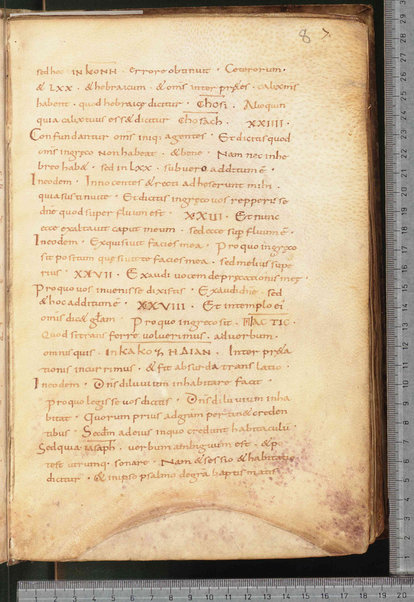 87
sed hoc IN KONH · errore obtinuit · Ceterorum ·
& LXX · & hebraicum · & om̄s inter p̄r&es · calix m̄s
habent · quod hebraice dicitur · Chosi · Alioquin
quia calix tuus esset dicitur Chosach · XXIIII ·
Confundantur om̄s iniqi agentes · Et dicitis quod
om̄s in greco non habeat · & bene · Nam nec in he
breo hab& · sed in LXX · sub uero additum ē ·
In eodem · Innocentes & recti adheserunt mihi ·
quia sustinui te · Et dicitis in greco uos repperisse
dn̄e quod superfluum est · XXIII · Et nunc
ecce exaltauit caput meum · sed ecce supfluum ē ·
In eodem · Exquisiuit facies mea · Pro quo in greco
sit positum quesiuit te facies mea · sed melius supe
rius · XXVII · Exaudi uocem deprecationis meę
Pro quo uos inuenisse dixistis · Exaudi dn̄e · sed
& hoc additum ē · XXVIII · Et in templo ei
omis dic& gl̄am · Pro quo in greco sit · ΠΑC ΤΙC ·
Quod si transferre uoluerimus · ad uerbum ·
omnis quis · IN ΚΑΚΟΖΗΛΙΑΝ · Inter pr&a
tionis incurrimus · & fit absurda translatio ·
In eodem · Dn̄s diluuium inhabitare facit ·
Pro quo legisse uos dicitis · Dn̄s diluuium inha
bitat · Quorum prius ad gr̄am pertin& creden
tibus · Secdm̄ ad eius in quo credunt habitaculū ·
Sed quia iasaph · uerbum ambiguum est · & po
test utrumq; sonare · Nam & sessio & habitatio
dicitur · & in ipso psalmo de gr̄a baptismatis